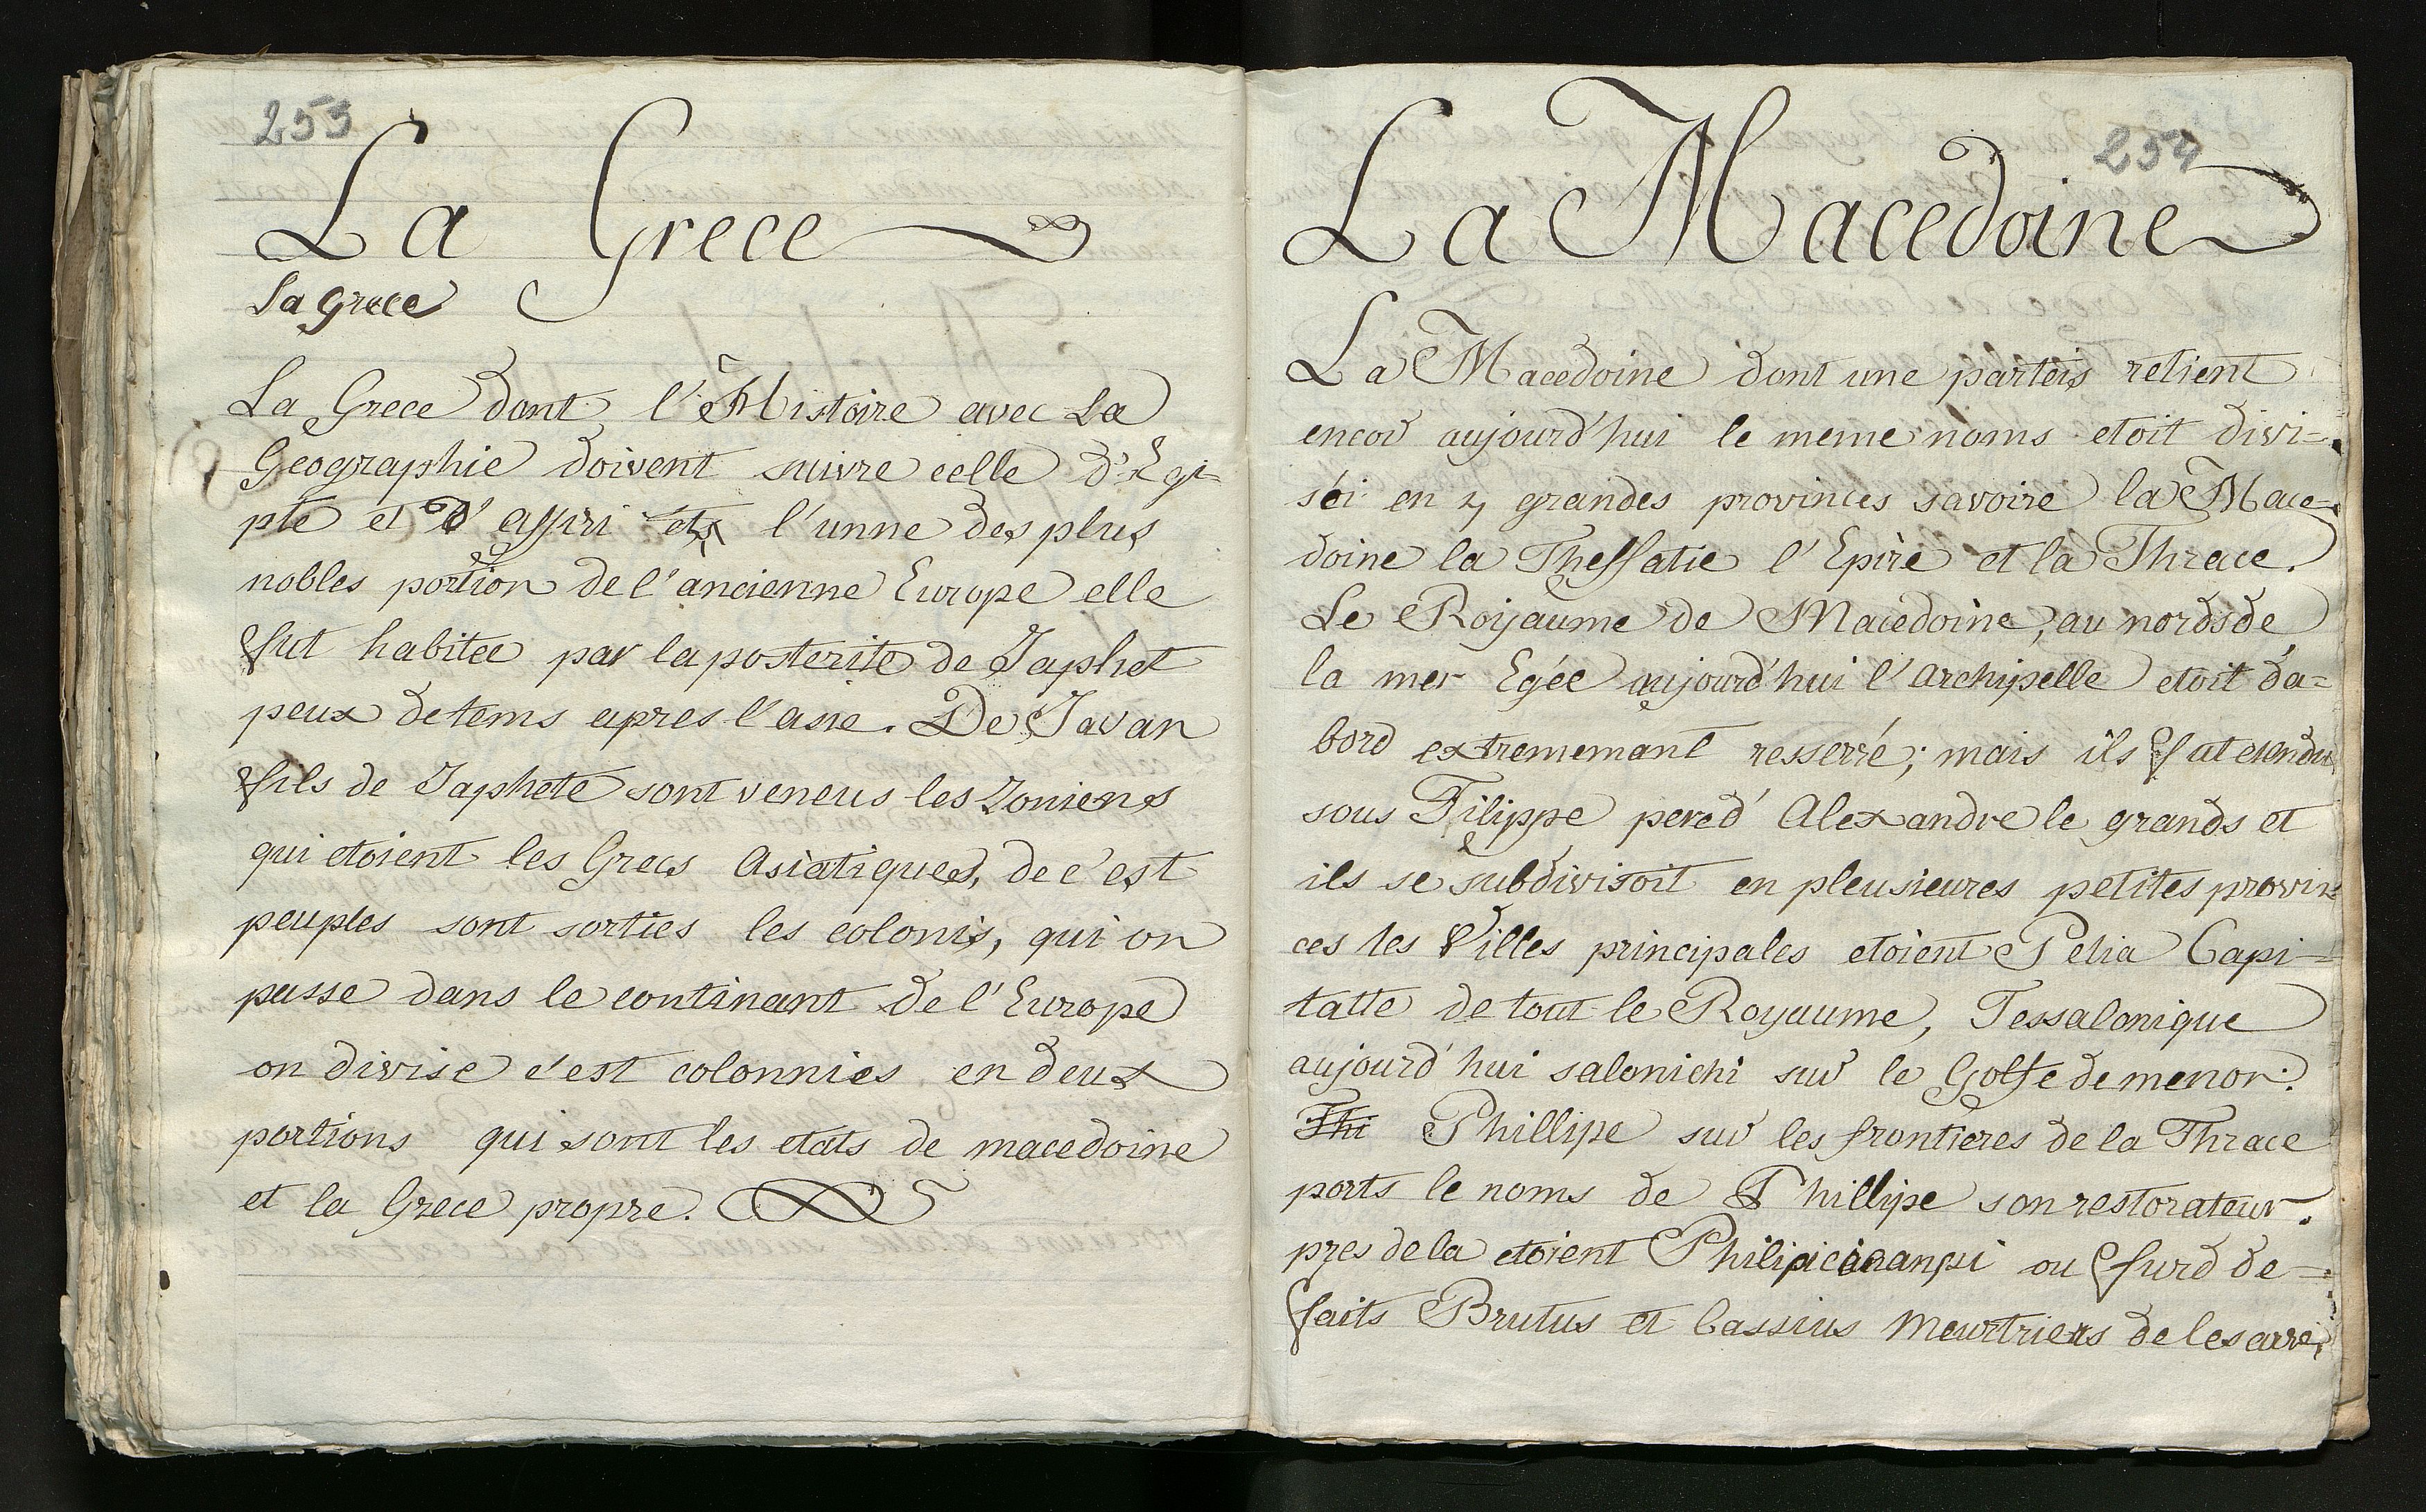 253
La Grece
La Grece
La Grece dont l'Histoire avec La
Geographie doivent suivre celle d'Egi=
pte et d'assiri ets l'unne des plus
nobles portion de l'ancienne Europe elle
fut habitee par la posterite de Japhet
peux de tems apres l'asie. De Javan
fils de Japhete sont veneus les Ioniens
qui etoient les Grecs Asiatiques, de c'est
peuples sont sorties les colonis, qui on
passe dans le continant de l'Europe
on divise c'est colonnies en deux
portions qui sont les etats de macedoine
et la Grece propre.
254
La Macedoine
La Macedoine dont une parteis retient
encor aujourd'hui le meme noms etoit divi=
séi en 4 grandes provinces savoire la Mace=
doine la Thessatie l'Epire et la Thrace.
Le Roijaume de Macedoine, au nords de
la mer Egée aujourd'hui l'Archipelle etoit da=
bord extrememant resserré; mais ils fut etendu
sous Filippe pere d'Alexandre le grands et
ils se subdivisoit en pleusieures petites provin
ces les Villes principales etoient Pelia Capi=
tatte de tout le Royaume, Tessalonique
aujourd'hui salonichi sur le Golfe de menor.
Thi Phillipe sur les frontieres de la Thrace
ports le noms de Phillipe son restorateur.
pres de la etoient ou furd de=
faits Brutus et Cassius Meurtriers de Cesarre,